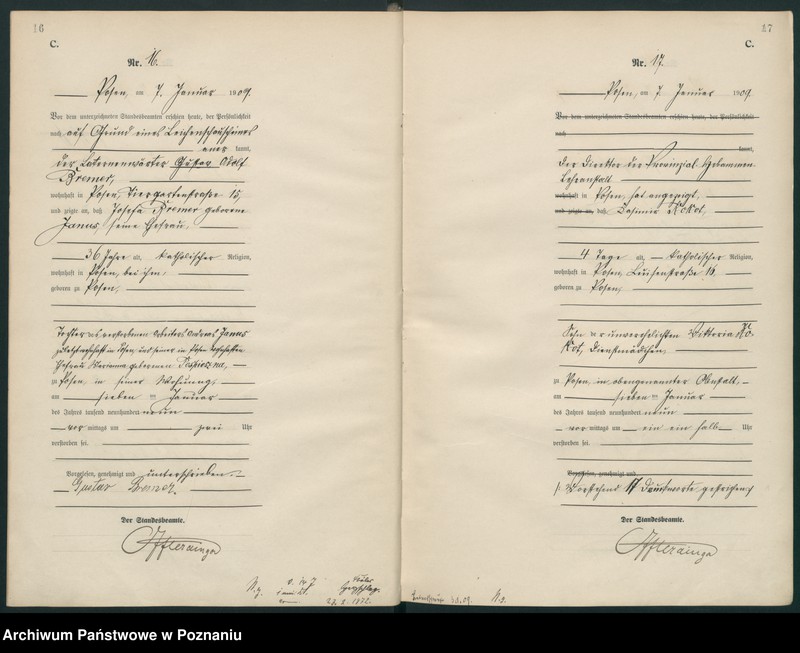 16
C.
Nr. 16.
Posen, am 7. Januar 1909.
Vor dem unterzeichneten Standesbeamten erschien heute, der Persönlichkeit
nach auf Grund eines Leichenschauscheines
kannt,
der Laternenwärter Gustav Adolf
Bremer,
wohnhaft in Posen, Tiergartenstrasse 15,
und zeigte an, daß Josefa Bremer geborene
Janus, seine Ehefrau,
36 Jahre alt, katholischer Religion,
wohnhaft in Posen, bei ihm,
geboren zu Posen,
Tochter des verstorbenen Arbeiters Andreas Janus
zuletzt wohnhaft in Posen, und seiner in Posen wohnhaften
Ehefrau Marianna geborenen
zu Posen, in seiner Wohnung,
am sieben ten Januar
des Jahres tausend neunhundert neun
vor mittags um zwei Uhr
verstorben sei.
Vorgelesen, genehmigt und unterschrieben.
Gustav Bremer
Der Standesbeamte.
27
C.
Nr. 17.
Posen, am 7. Januar 1909
Vor dem unterzeichneten Standesbeamten erschien heute, der Persönlichkeit
nach
kannt,
Der Direktor der Provinzial-Hebammen
Lehranstalt
wohnhaft in Posen, hat angezeigt,
und zeigte an, daß Casimir Kokot,
4 Tage alt, katholischer Religion,
wohnhaft in Posen, Luisenstraße 16,
geboren zu Posen,
Sohn der unverehelichten Viktoria Ko-
kot, Dienstmädchen,
zu Posen, in obengenannter Anstalt,
am sieben ten Januar
des Jahres tausend neunhundert neun
vor mittags um ein ein halb Uhr
verstorben sei.
Vorgelesen, genehmigt und
Vorstehend 17 Druckworte gestrichen
Der Standesbeamte.
Archiwum Państwowe w Poznaniu